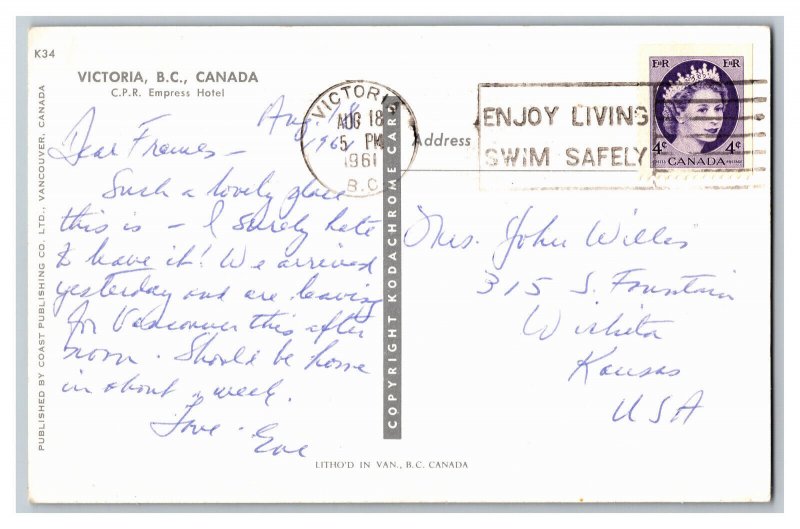 K34
VICTORIA, B.C., CANADA
C.P.R. Empress Hotel
PUBLISHED BY COAST PUBLISHING CO. LTD., VANCOUVER, CANADA
Aug. 18
1961
Dear Frances -
Such a lovely place
this is - I surely hate
to leave it! We arrived
yesterday and are leaving
for Vancouver this after
noon. Should be home
in about a week.
Love - Eve
COPYRIGHT KODACHROME CARD
VICTORIA
AUG 18
5 PM
1961
B.C.
ENJOY LIVING
SWIM SAFELY
E II R E II R
4¢ 4¢
CANADA
POSTES POSTAGE
Address
Mrs. John Willis
315 S. Fountain
Wichita
Kansas
USA
LITHO'D IN VAN., B.C. CANADA